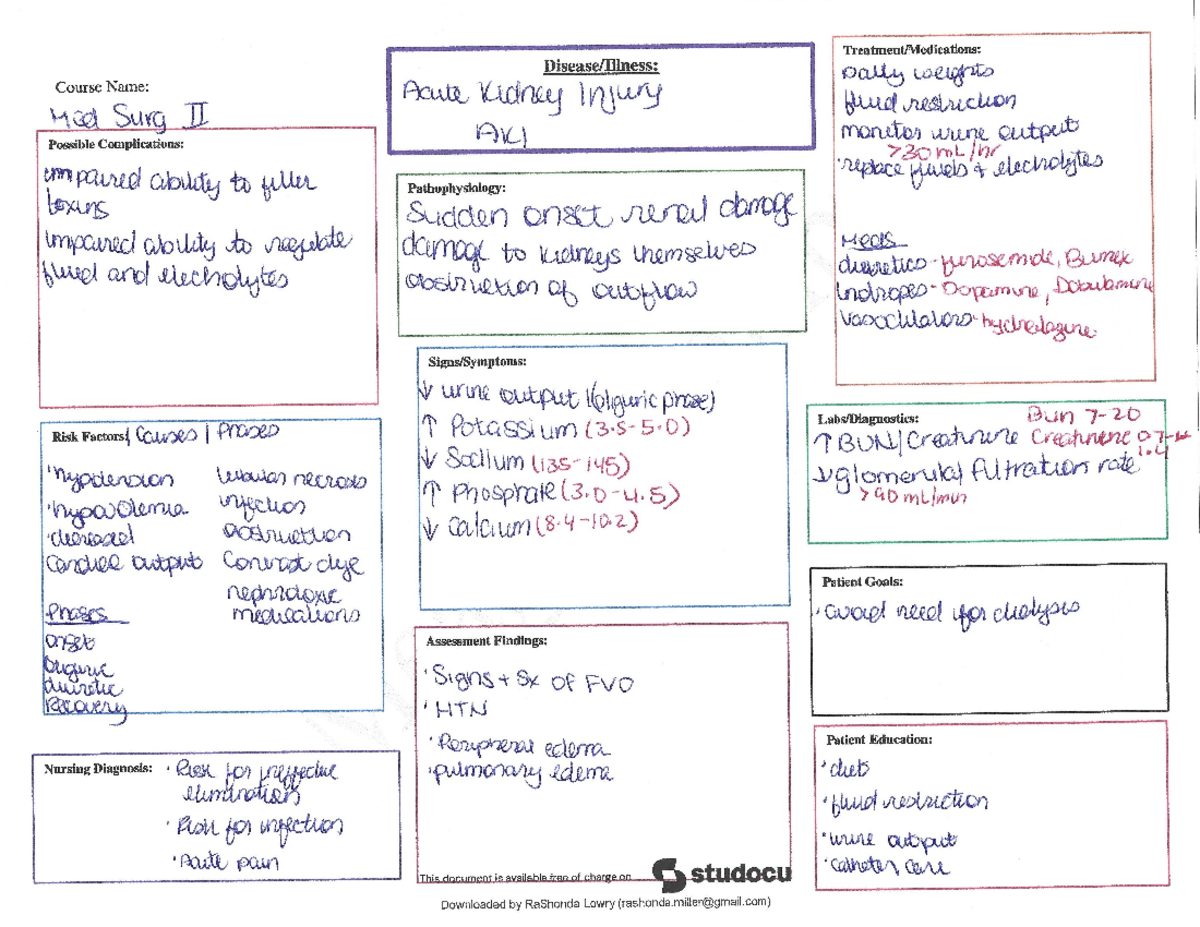 Course Name:
Med Surg II
Disease/Illness:
Acute Kidney Injury
AKI
Treatment/Medications:
Daily weights
fluid restriction
monitor urine output
>30 mL/hr
·replace fluids & electrolytes
Meds
diuretics - furosemide, Bumex
Inotropes - Dopamine, Dobutamine
Vasodilators - hydralazine
Possible Complications:
impaired ability to filter
toxins
impaired ability to regulate
fluid and electrolytes
Pathophysiology:
Sudden onset renal damage
damage to kidneys themselves
obstruction of outflow
Signs/Symptoms:
↓ urine output (oliguric phase)
↑ Potassium (3.5-5.0)
↓ Sodium (135-145)
↑ Phosphate (3.0-4.5)
↓ Calcium (8.4-10.2)
Labs/Diagnostics:
Bun 7-20
↑ BUN/Creatinine Creatinine 0.7-
1.4
↓ glomerular filtration rate
>90 mL/min
Risk Factors/ Causes / Phases
·hypotension
·hypovolemia
·decreased
cardiac output
tubular necrosis
infection
obstruction
Contrast dye
nephrotoxic
medications
Phases
onset
oliguric
diuretic
Recovery
Assessment Findings:
·Signs + Sx of FVO
·HTN
·Peripheral edema
·pulmonary edema
Patient Goals:
·avoid need for dialysis
Patient Education:
·diet
·fluid restriction
·urine output
·catheter care
Nursing Diagnosis: ·Risk for ineffective
elimination
·Risk for infection
·Acute pain
This document is available free of charge on
studocu
Downloaded by RaShonda Lowry (rashonda.miller@gmail.com)